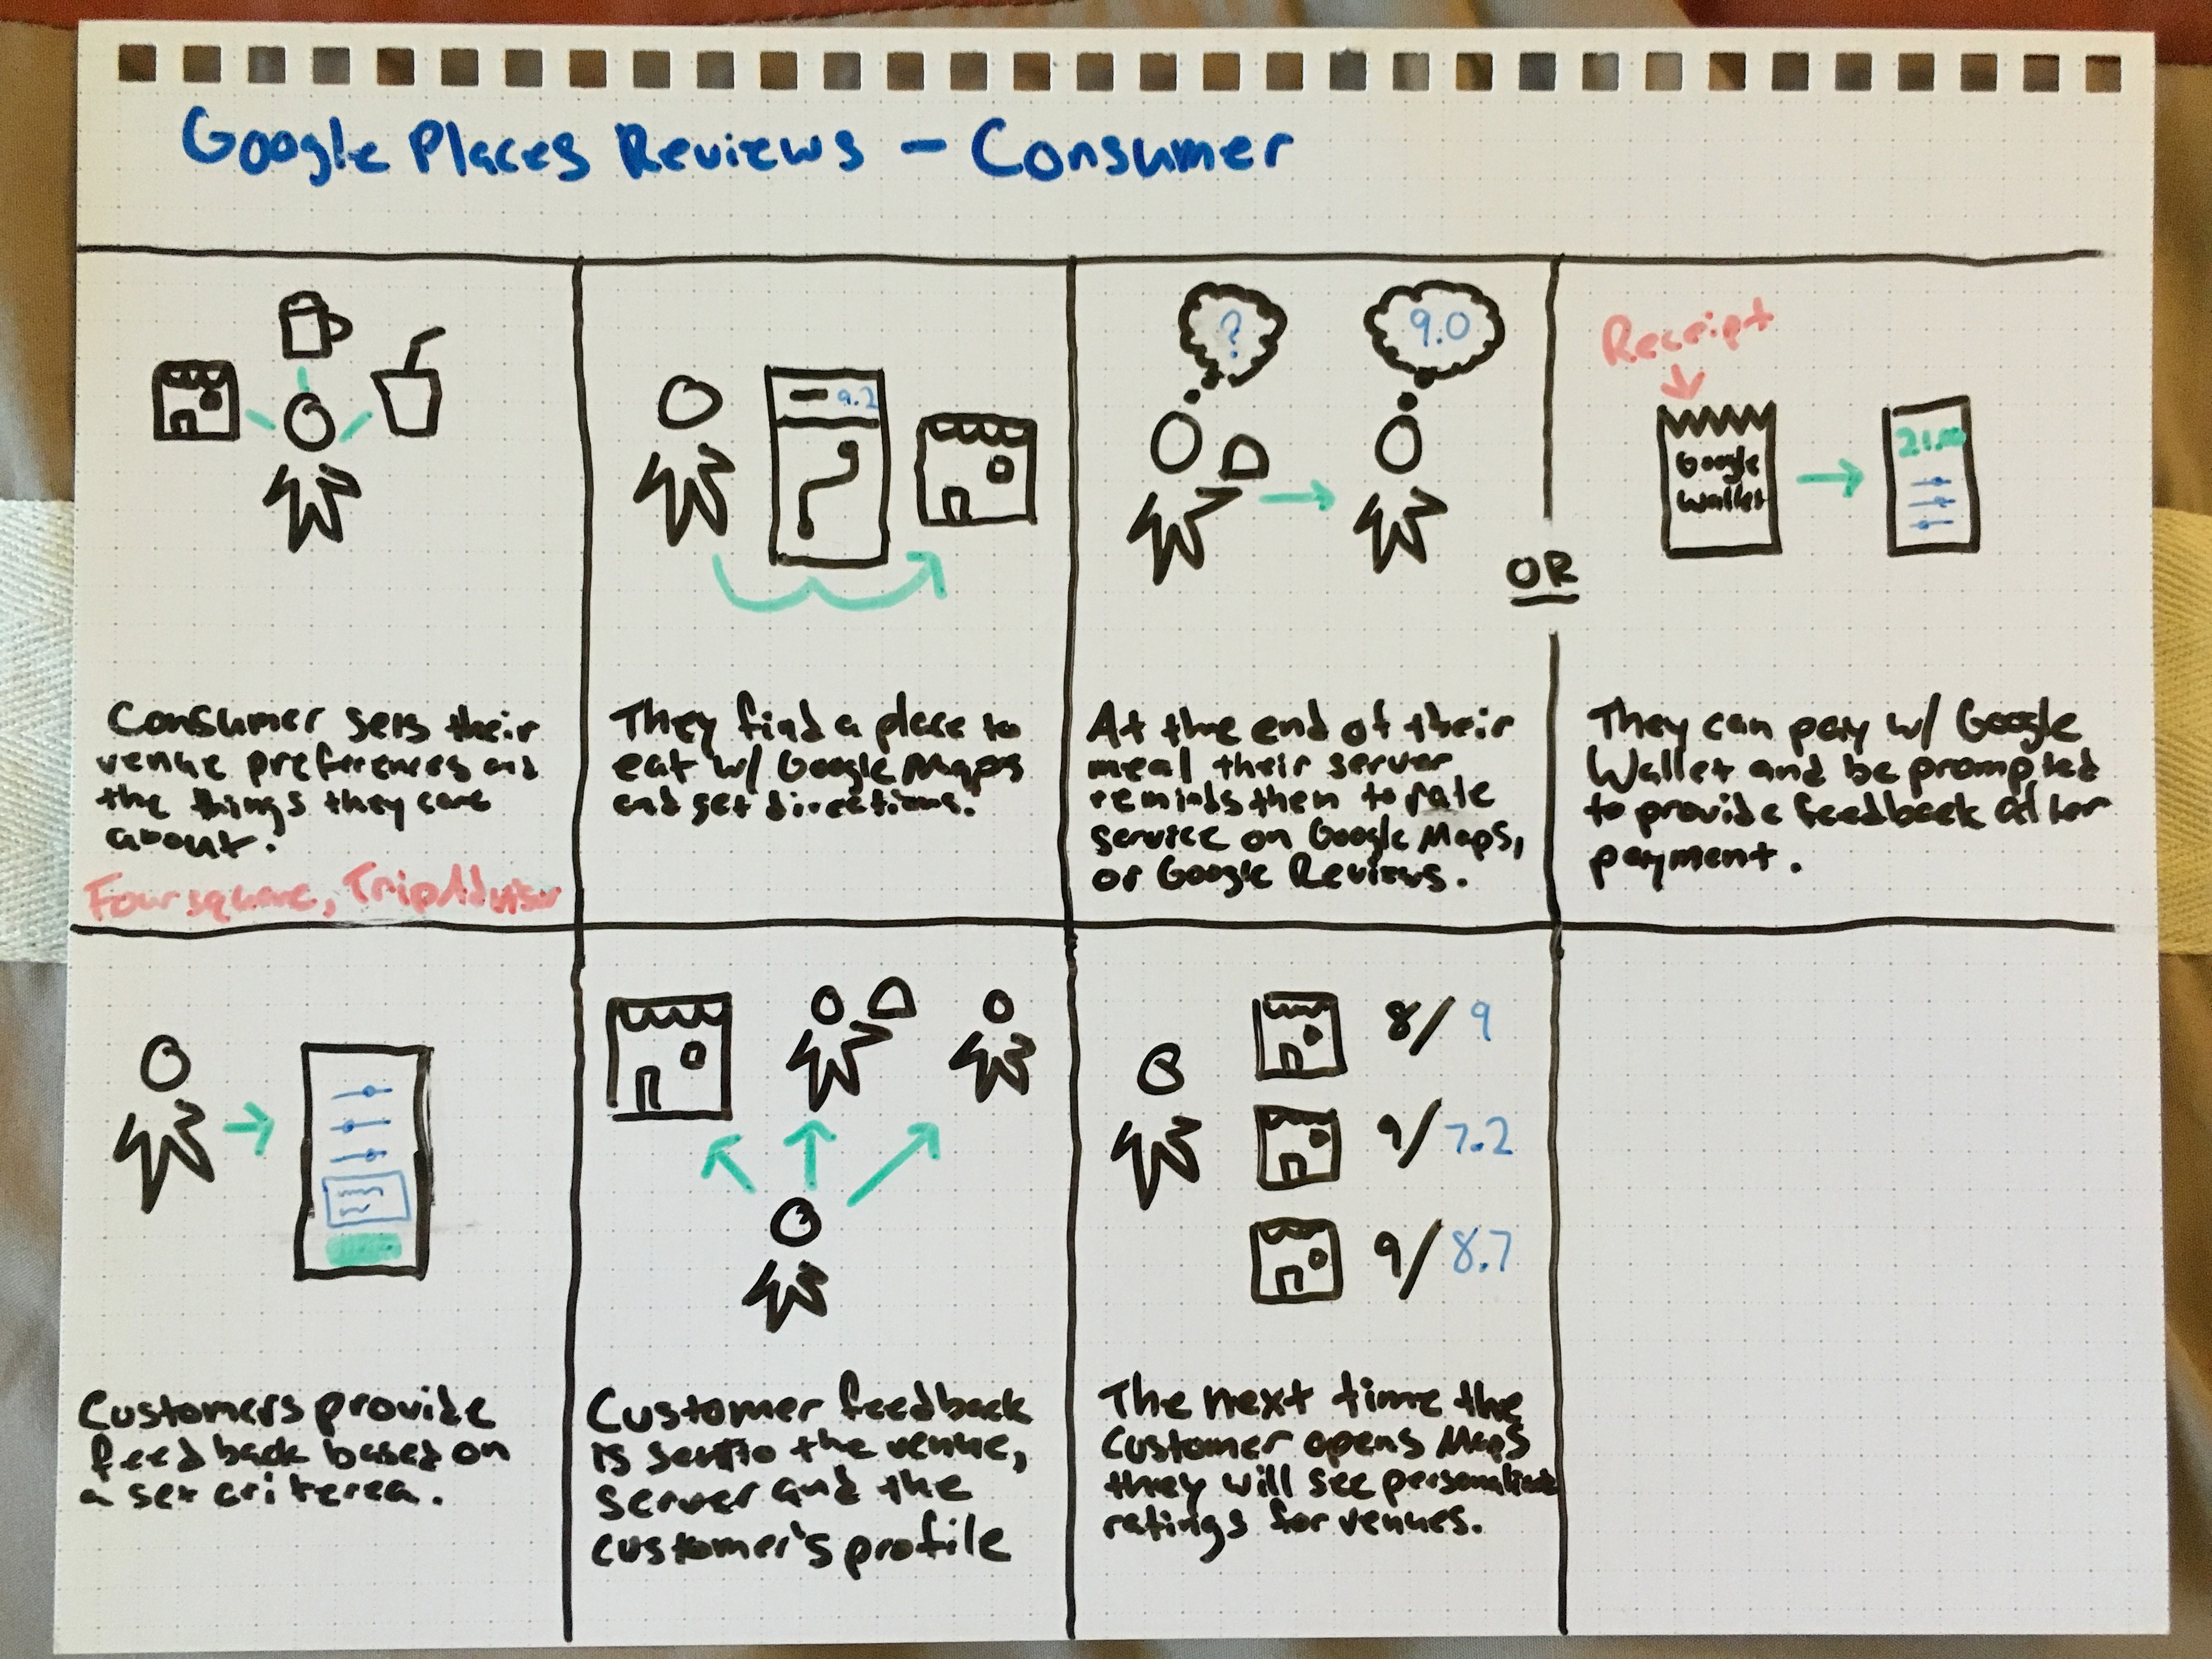 Google Places Reviews - Consumer
Consumer sets their
venue preferences and
the things they care
about.
Foursquare, TripAdvisor
9.2
They find a place to
eat w/ Google Maps
and get directions.
?
9.0
At the end of their
meal their server
reminds them to rate
service on Google Maps,
or Google Reviews.
OR
Receipt
Google
Wallet
21.00
They can pay w/ Google
Wallet and be prompted
to provide feedback after
payment.
Customers provide
feedback based on
a set criterea.
Customer feedback
is sent to the venue,
server and the
customer's profile
8/9
9/7.2
9/8.7
The next time the
Customer opens Maps
they will see personalized
ratings for venues.